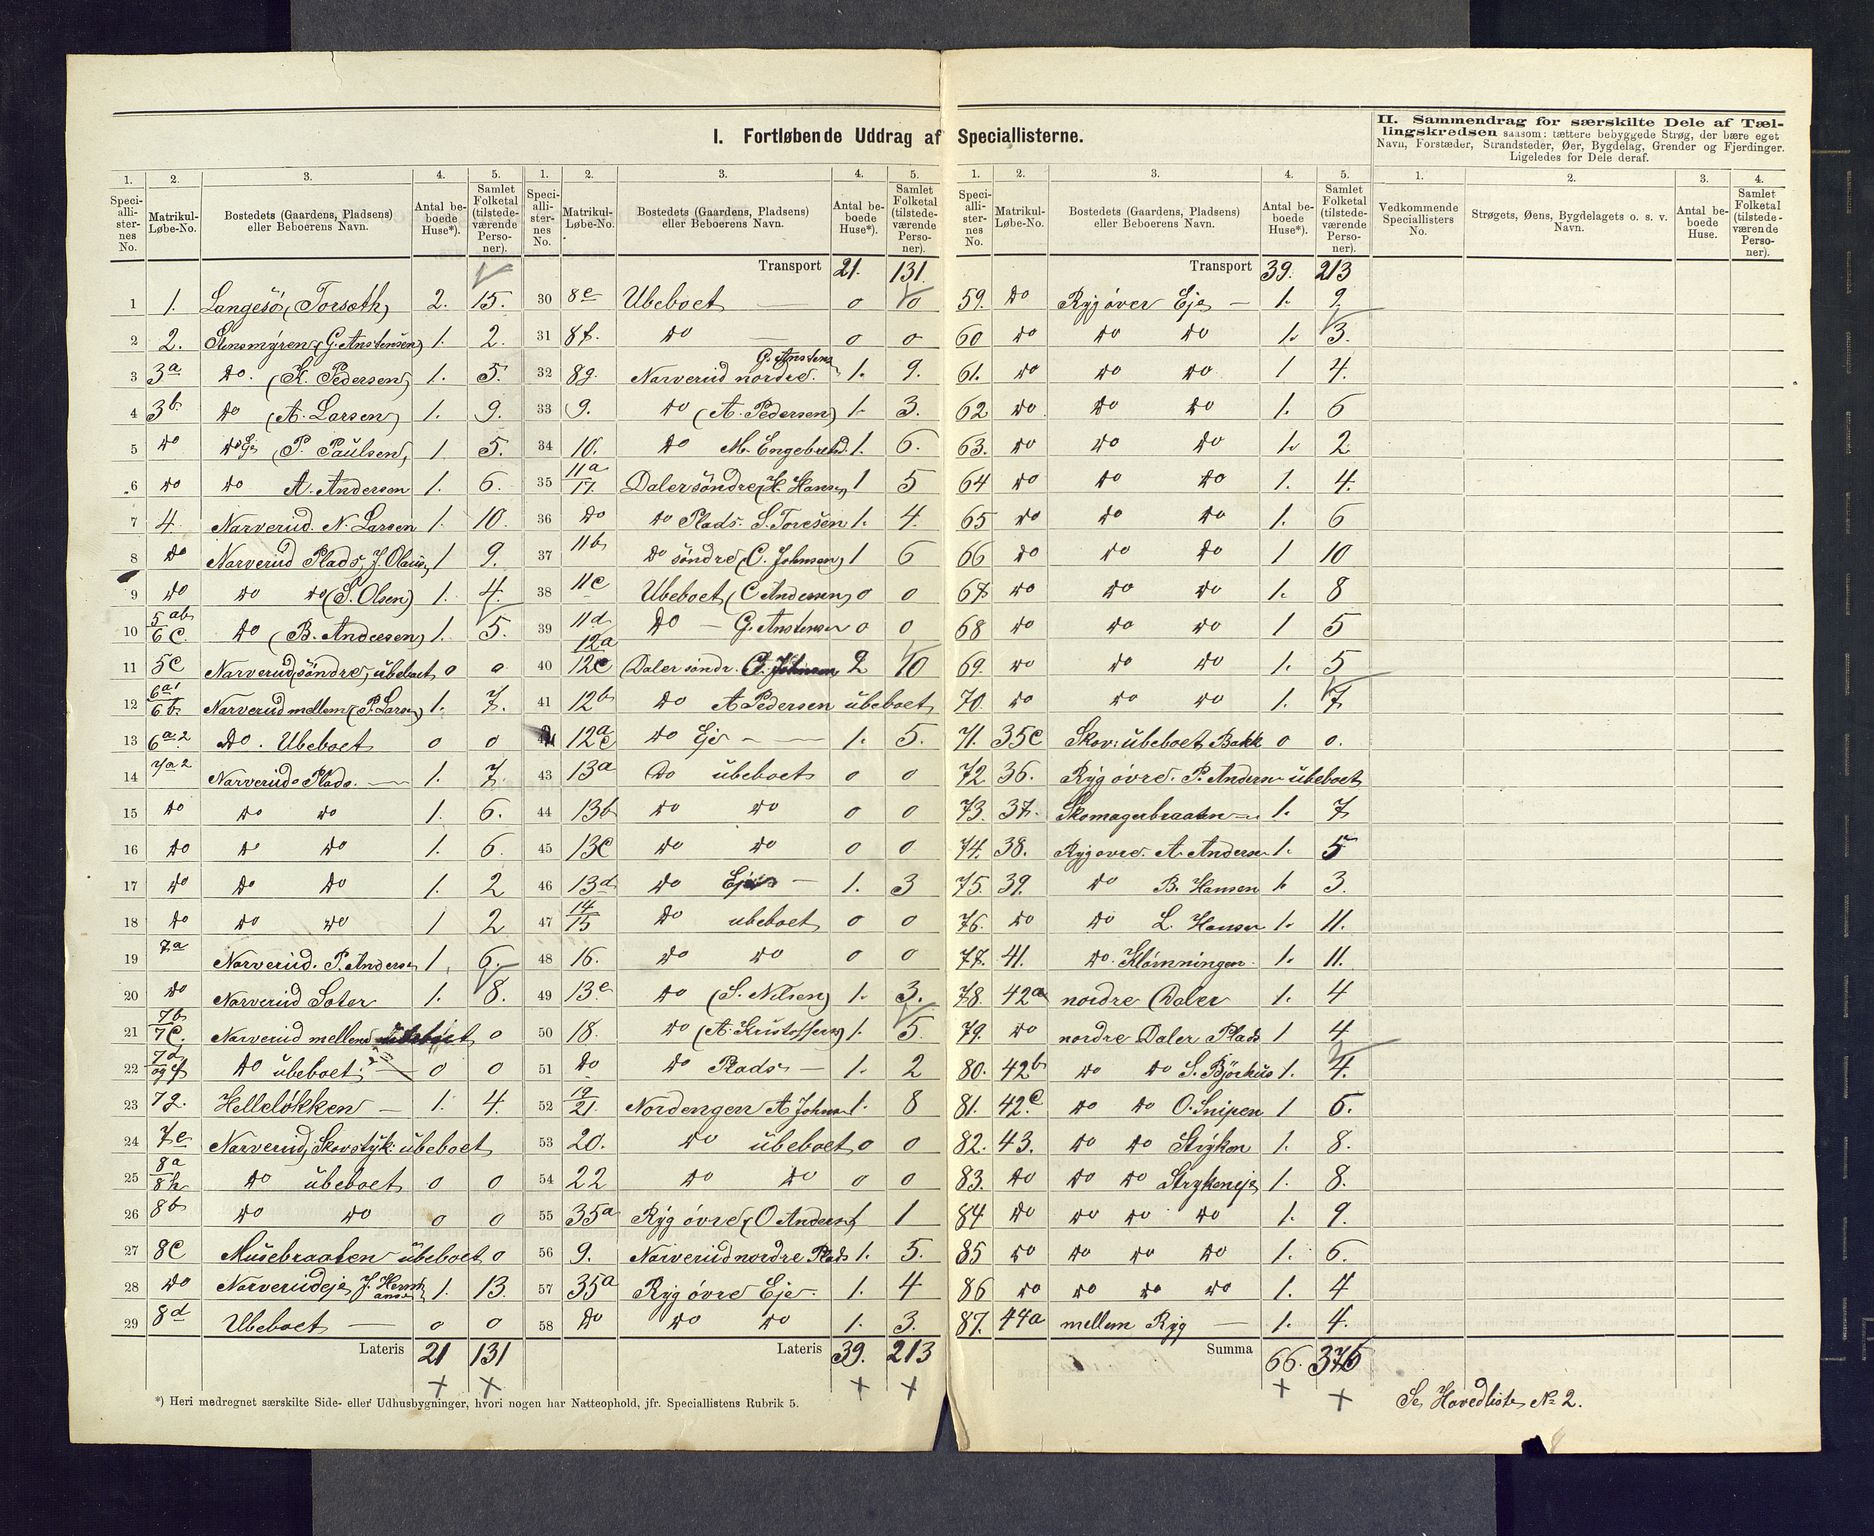 I. Fortløbende Uddrag af Speciallisterne.
II. Sammendrag for særskilte Dele af Tæl-
lingskredsen saasom: tættere bebyggede Strøg, der bære eget
Navn, Forstæder, Strandsteder, Øer, Bygdelag, Grender og Fjerdinger.
Ligeledes for Dele deraf.
1. 2. 3. 4. 5.
Speciallisternes No. Matrikul-Løbe-No. Bostedets (Gaardens, Pladsens) eller Beboerens Navn. Antal beboede Huse*). Samlet Folketal (tilstedeværende Personer).
1 1. Langesö, Torseth, 2. 15.
2 2. Stensmyren (G. Anstensen) 1. 2.
3 3a Do. (K. Pedersen) 1. 5.
4 3b Do (A. Larsen) 1. 9.
5 Do Do Eje P. Paulsen, 1 5.
6 Do Do A. Andersen 1. 6.
7 4. Narverud. N. Larsen 1. 10.
8 Do Narverud Plads, J. Olaus, 1 9.
9 Do Do Do (S. Olsen) 1. 4.
10 5ab/6c. Do (B. Andersen) 1. 5.
11 5c Narverud söndre, übeboet 0 0
12 6a1/6b Narverud mellem (P. Larsen) 1. 7.
13 6a2 Do. Übeboet 0 0
14 7a2 Narverud Plads. 1. 7.
15 Do Do Do 1. 6.
16 Do Do Do 1. 6.
17 Do Do Do 1. 2
18 Do Do Do 1 2
19 7a Narverud. P. Andersen 1, 6.
20 Do Narverud Soter 1. 8.
21 7b/7c. Narverud mellem übeboet 0
22 7d og f Do übeboet. 0 0
23 7g. Helleløkken 1. 4.
24 7e Narverud, Skovstyk: übeboet
25 8a/8h Do übeboet 0 0
26 8b Do Do 0 0
27 8c Musebraaten übeboet 0
28 Do Narverudeje J. 1. 13.
29 8d Übeboet 0 0
Lateris 21 131
1. 2. 3. 4. 5.
Speciallisternes No. Matrikul-Løbe-No. Bostedets (Gaardens, Pladsens) eller Beboerens Navn. Antal beboede Huse*). Samlet Folketal (tilstedeværende Personer).
Transport 21. 131.
30 8e Übeboet 0 0
31 8f. Do 0 0
32 8g. Narverud nordre. G. Anstens 1. 9.
33 9. Do (A. Pedersen) 1. 3.
34 10. Do M. Engebretsd. 1. 6.
35 11a/17. Daler söndre (H. Hansen) 1 5
36 Do Do Plads. S. Toresen 1. 4.
37 11b Do söndre (C. Johnsen) 1 6
38 11c Übeboet (C Andersen) 0 0
39 11d Do G. Anstensen 0 0
40 12a/12c Daler söndr. C. Johnsen 2 10
41 12b Do A Pedersen übeboet
42 12a/c Do Eje 1. 5.
43 13a Do übeboet 0 0
44 13b Do Do 0 0
45 13c Do Do 0 0
46 13d Do Eje 1. 3
47 14/15 Do ubeboet 0 0
48 16. Do Do 0 0
49 13e Do (S. Nilsen) 1. 3.
50 18. Do (A. Kristoffersen) 1. 5.
51 Do Do Plads 1. 2
52 19/21. Nordengen A Johns 1. 8
53 20. Do übeboet 0 0
54 22 Do Do 0 0
55 35a Ryg övre, (O Anders) 1 1
56 9. Narverud nordre Plads 1. 5.
57 35a Ryg övre Eje. 1. 4
58 Do Do Do 1. 3.
Lateris 39. 213
1. 2. 3. 4. 5.
Speciallisternes No. Matrikul-Løbe-No. Bostedets (Gaardens, Pladsens) eller Beboerens Navn. Antal beboede Huse*). Samlet Folketal (tilstedeværende Personer).
Transport 39. 213
59. Do Ryg över Eje 1. 9.
60 Do Do Do 1. 3.
61. Do Do Do 1 4.
62 Do Do Do 1. 6
63. Do Do Do 1. 2
64 Do Do Do 1. 4.
65 Do Do Do 1. 6
66 Do Do Do 1 10
67 Do Do Do 1. 8
68 Do Do Do 1 5
69. Do Do Do 1. 5
70. Do Do Do 1. 7
71. 35c Skov: übeboet, Bakk 0 0.
72. 36. Ryg övre. P. Andersn übeboet
73. 37. Skomagerbraaten 1. 7
74. 38. Ryg ovre. A. Andersn 1. 5
75. 39. Do B. Hansen 1. 3.
76. Do Do L. Hansen 1. 11.
77. 41. Do. Klömningen 1. 11.
78. 42a nordre Daler 1. 4
79. Do nordre Daler Plads 1 4.
80. 42b Do Do S. Björhus 1. 4.
81. 42.c Do Do O. Snipen 1 6.
82. 43. Do Do Stryken 1. 8.
83. Do Do Do Strykeneje 1. 8.
84 Do Do Do Do 1. 9.
85 Do Do Do Do 1. 6.
86 Do Do Do Do 1. 4
87. 44a mellem Ryg 1. 4.
Summa 66. 375
1. 2. 3. 4.
Vedkommende Speciallisters No. Strøgets, Øens, Bygdelagets o. s. v. Navn. Antal beboede Huse. Samlet Folketal (tilstedeværende Personer).
*) Heri medregnet særskilte Side- eller Udhusbygninger, hvori nogen har Natteophold, jfr. Speciallistens Rubrik 5.
Se Hovedliste No 2.